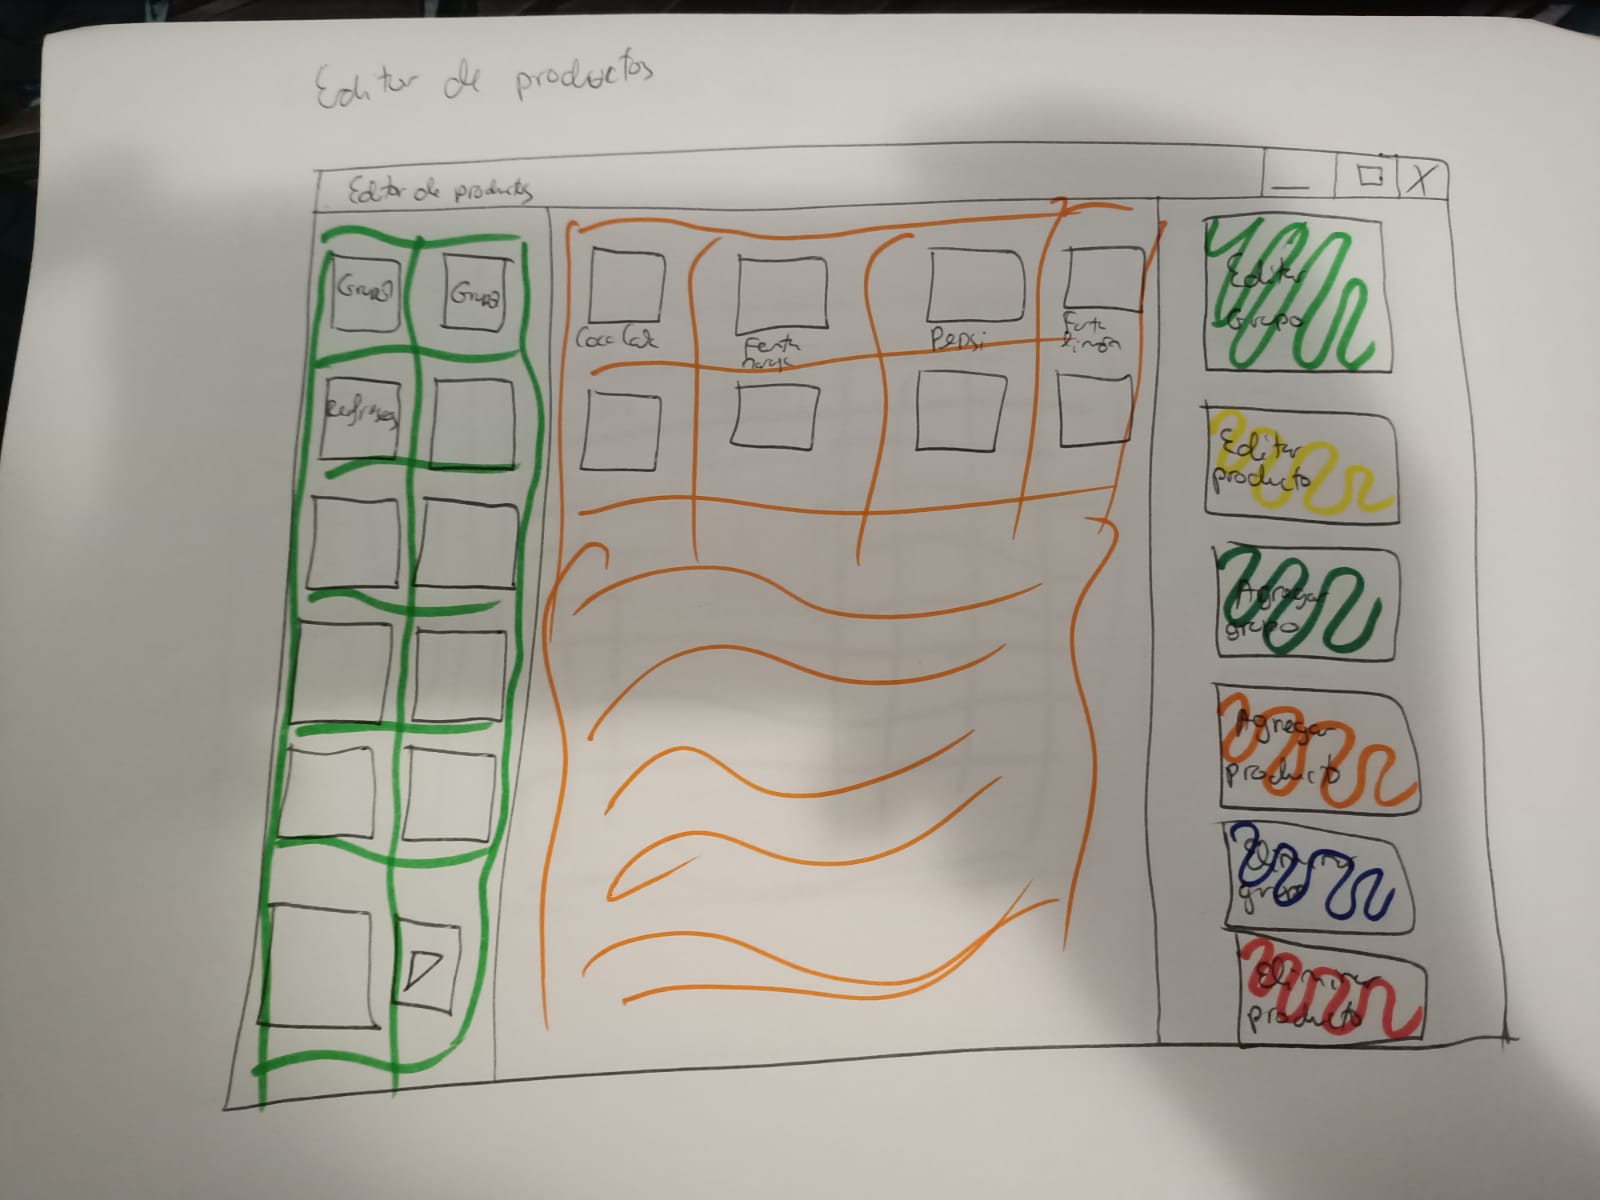 Editor de productos
Editor de productos
X
Grupo
Grupo
Refrescos
Coca Cola
Fanta
naranja
Pepsi
Fanta
limón
Editar
Grupo
Editar
producto
Agregar
grupo
Agregar
producto
Eliminar
grupo
Eliminar
producto